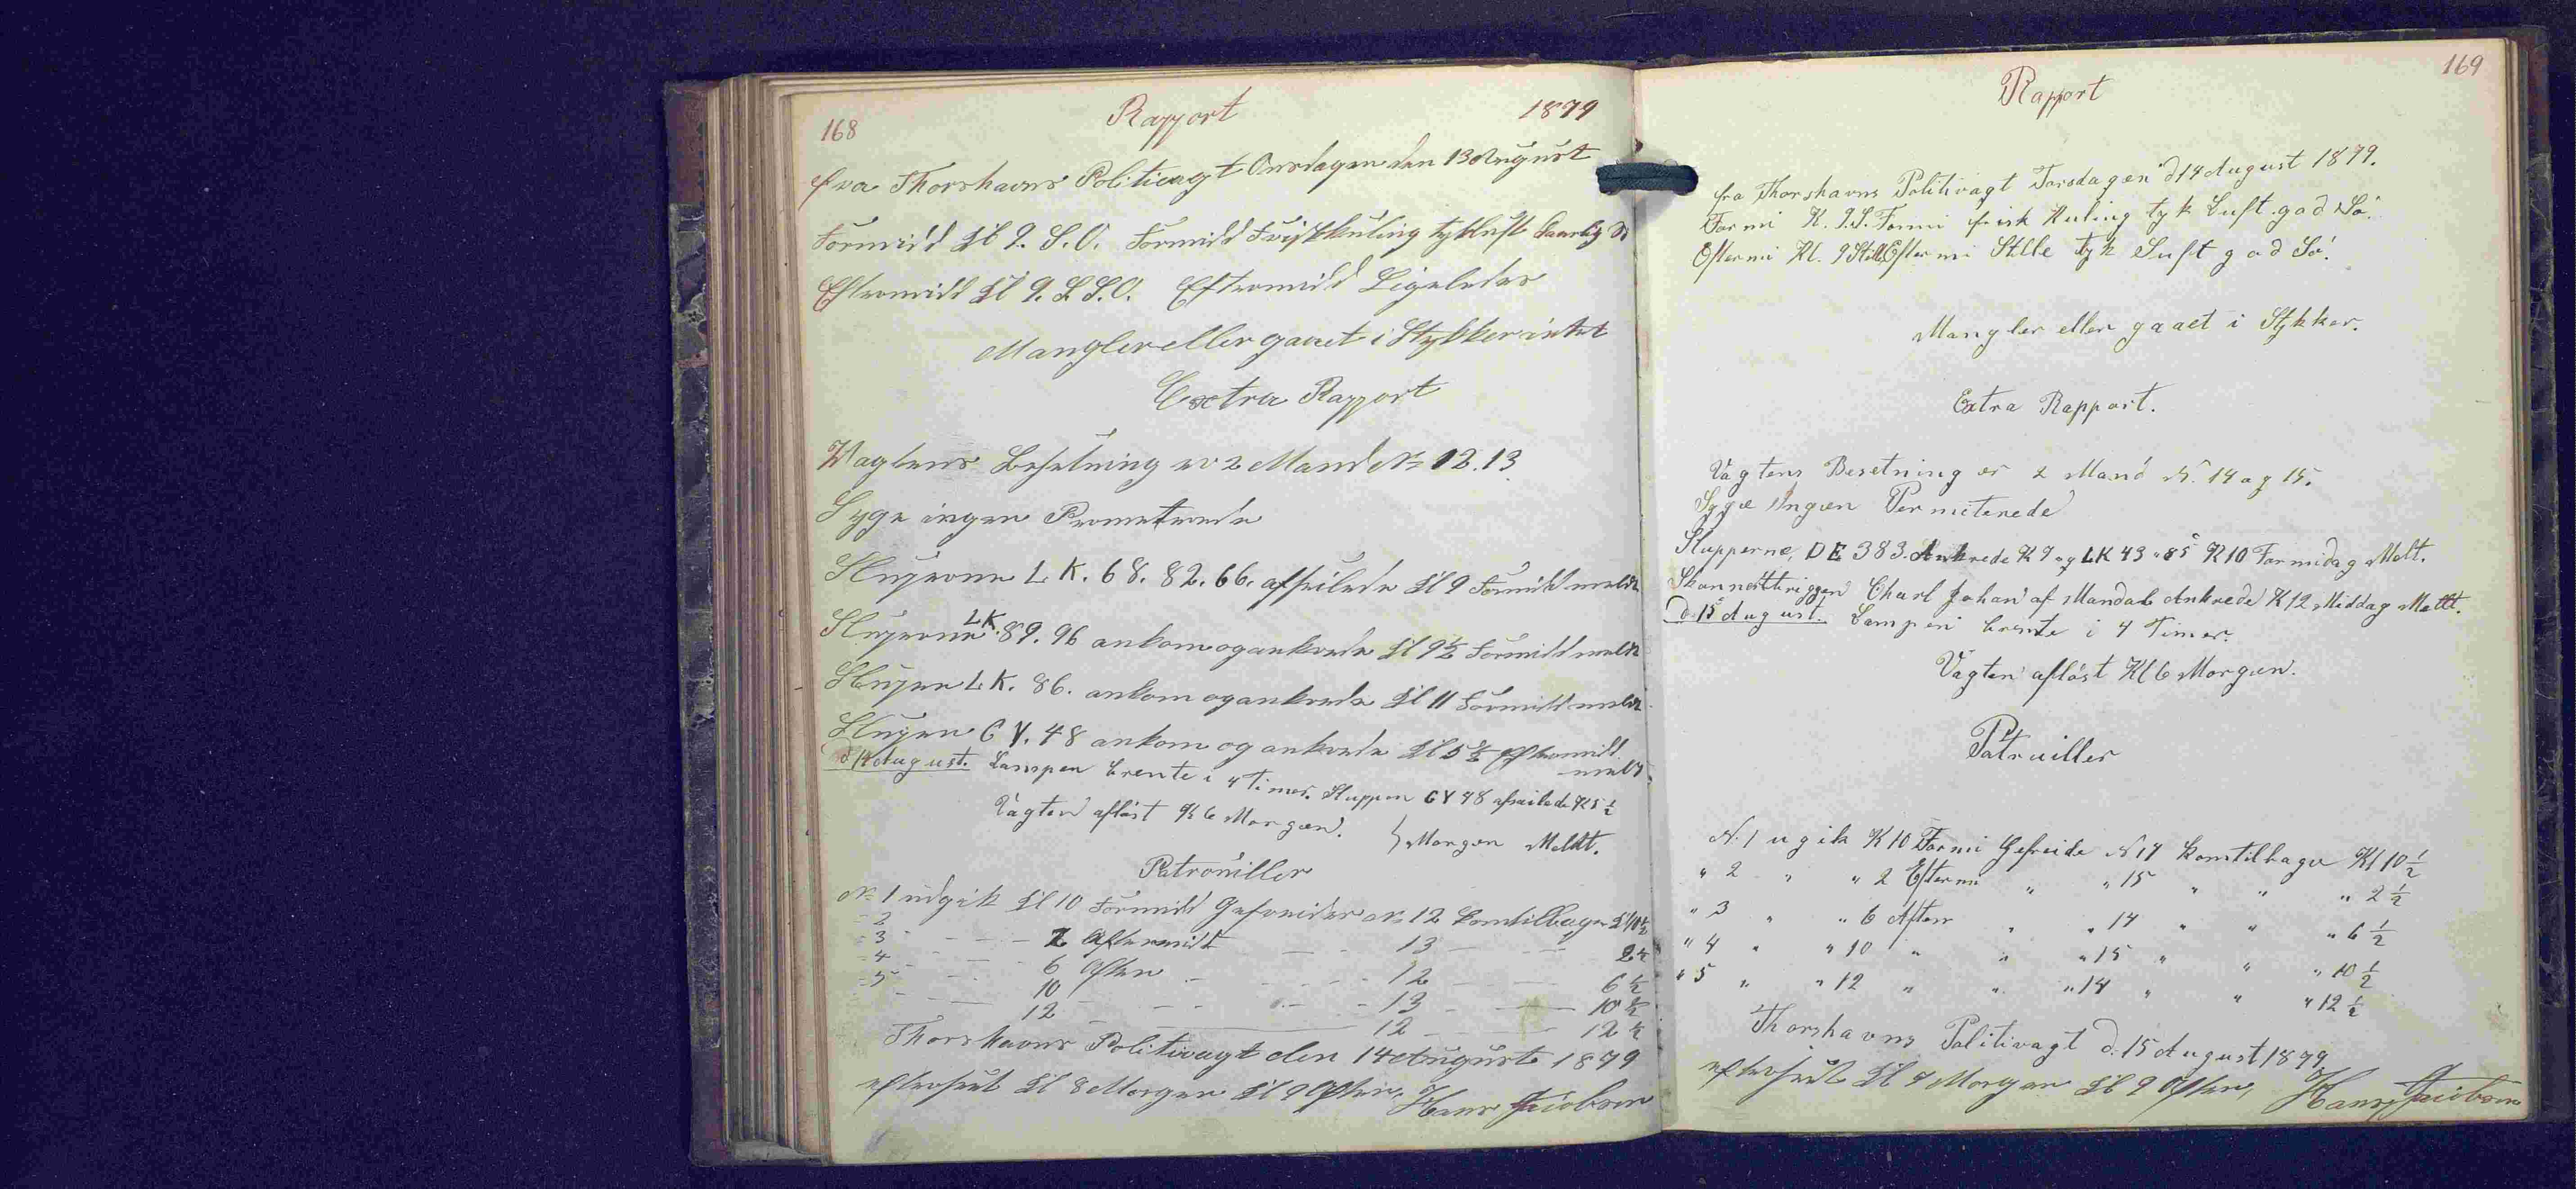 168
Rapport
1879
fra Thorshavns Politivagt Onsdagen den 13 August
Formidd Kl 9. S.O. Formidd Friskkuling tykluft daarlig
Eftermidd Kl 9. S.S.O. Eftermidd Ligeledes
Mangler eller gaaet i Stykker intet
Extra Rapport
Wagtens Besetning er 2 Mand No 12.13
Syge ingen Permeterede
Slupperne L.K. 68. 82. 66. afseilede Kl 9 Formidd meldt
Slupperne LK. 89. 96 ankom og ankrede Kl 9½ Formidd meldt
Sluppen L.K. 86. ankom og ankrede Kl 11 Formidd meldt
Sluppen G Y. 48 ankom og ankrede Kl 5½ Eftermidd
meldt
d 14 August. Lampen brente i 4 Timer. Sluppen GY 48 afseilede Kl 5½
Vagten aflöst Kl 6 Morgen. } Morgen Meldt.
Patrouiller
No 1 udgik Kl 10 Formidd Gefreider No 12 kom tilbage Kl 10½
= 2 - - - 2 Eftermidt - - 13 - - 2½
= 3 - - 6 Aften - - - 12 - - 6½
= 4 - - 10 - - - - 13 - - 10½
= 5 - - 12 - - - 12 - - 12½
Thorshavns Politivagt den 14 August 1879
efterseet Kl 8 Morgen Kl 9 Aften, Hans Jacobsen
169
Rapport
fra Thorshavns Politivagt Torsdagen d 14 August 1879.
Formi K. 9 S. Formi frisk Kuling tyk Luft god Sö.
Eftermi Kl. 9 Stille Eftermi Stille Tyk Luft god Sö.
Mangler eller gaaet i Stykker.
Extra Rapport.
Vagtens Besetning er 2 Mand N. 14 og 15.
Syge Ingen Permiterede
Slupperne, DE 383. Ankrede K 9 og LK 43 " 85 K 10 Formidag Melt.
Skonnertbriggen Charl Johan af Mandal Ankrede K 12 Middag Meltt.
d. 15 August. Lampen brente i 4 Timer.
Vagten aflöst Kl 6 Morgen.
Patruiller
N. 1 ugik K 10 Formi Gefreide N 14 komtilbage Kl 10½
" 2 " " 2 Eftermi " " 15 " " " 2½
" 3 " " 6 Aften " " 14 " " " 6½
" 4 " " 10 " " " 15 " " " 10½
" 5 " " 12 " " " 14 " " " 12½
Thorshavns Politivagt d. 15 August 1879
efterseet Kl 7 Morgen Kl 9 Aften, Hans Jacobsen